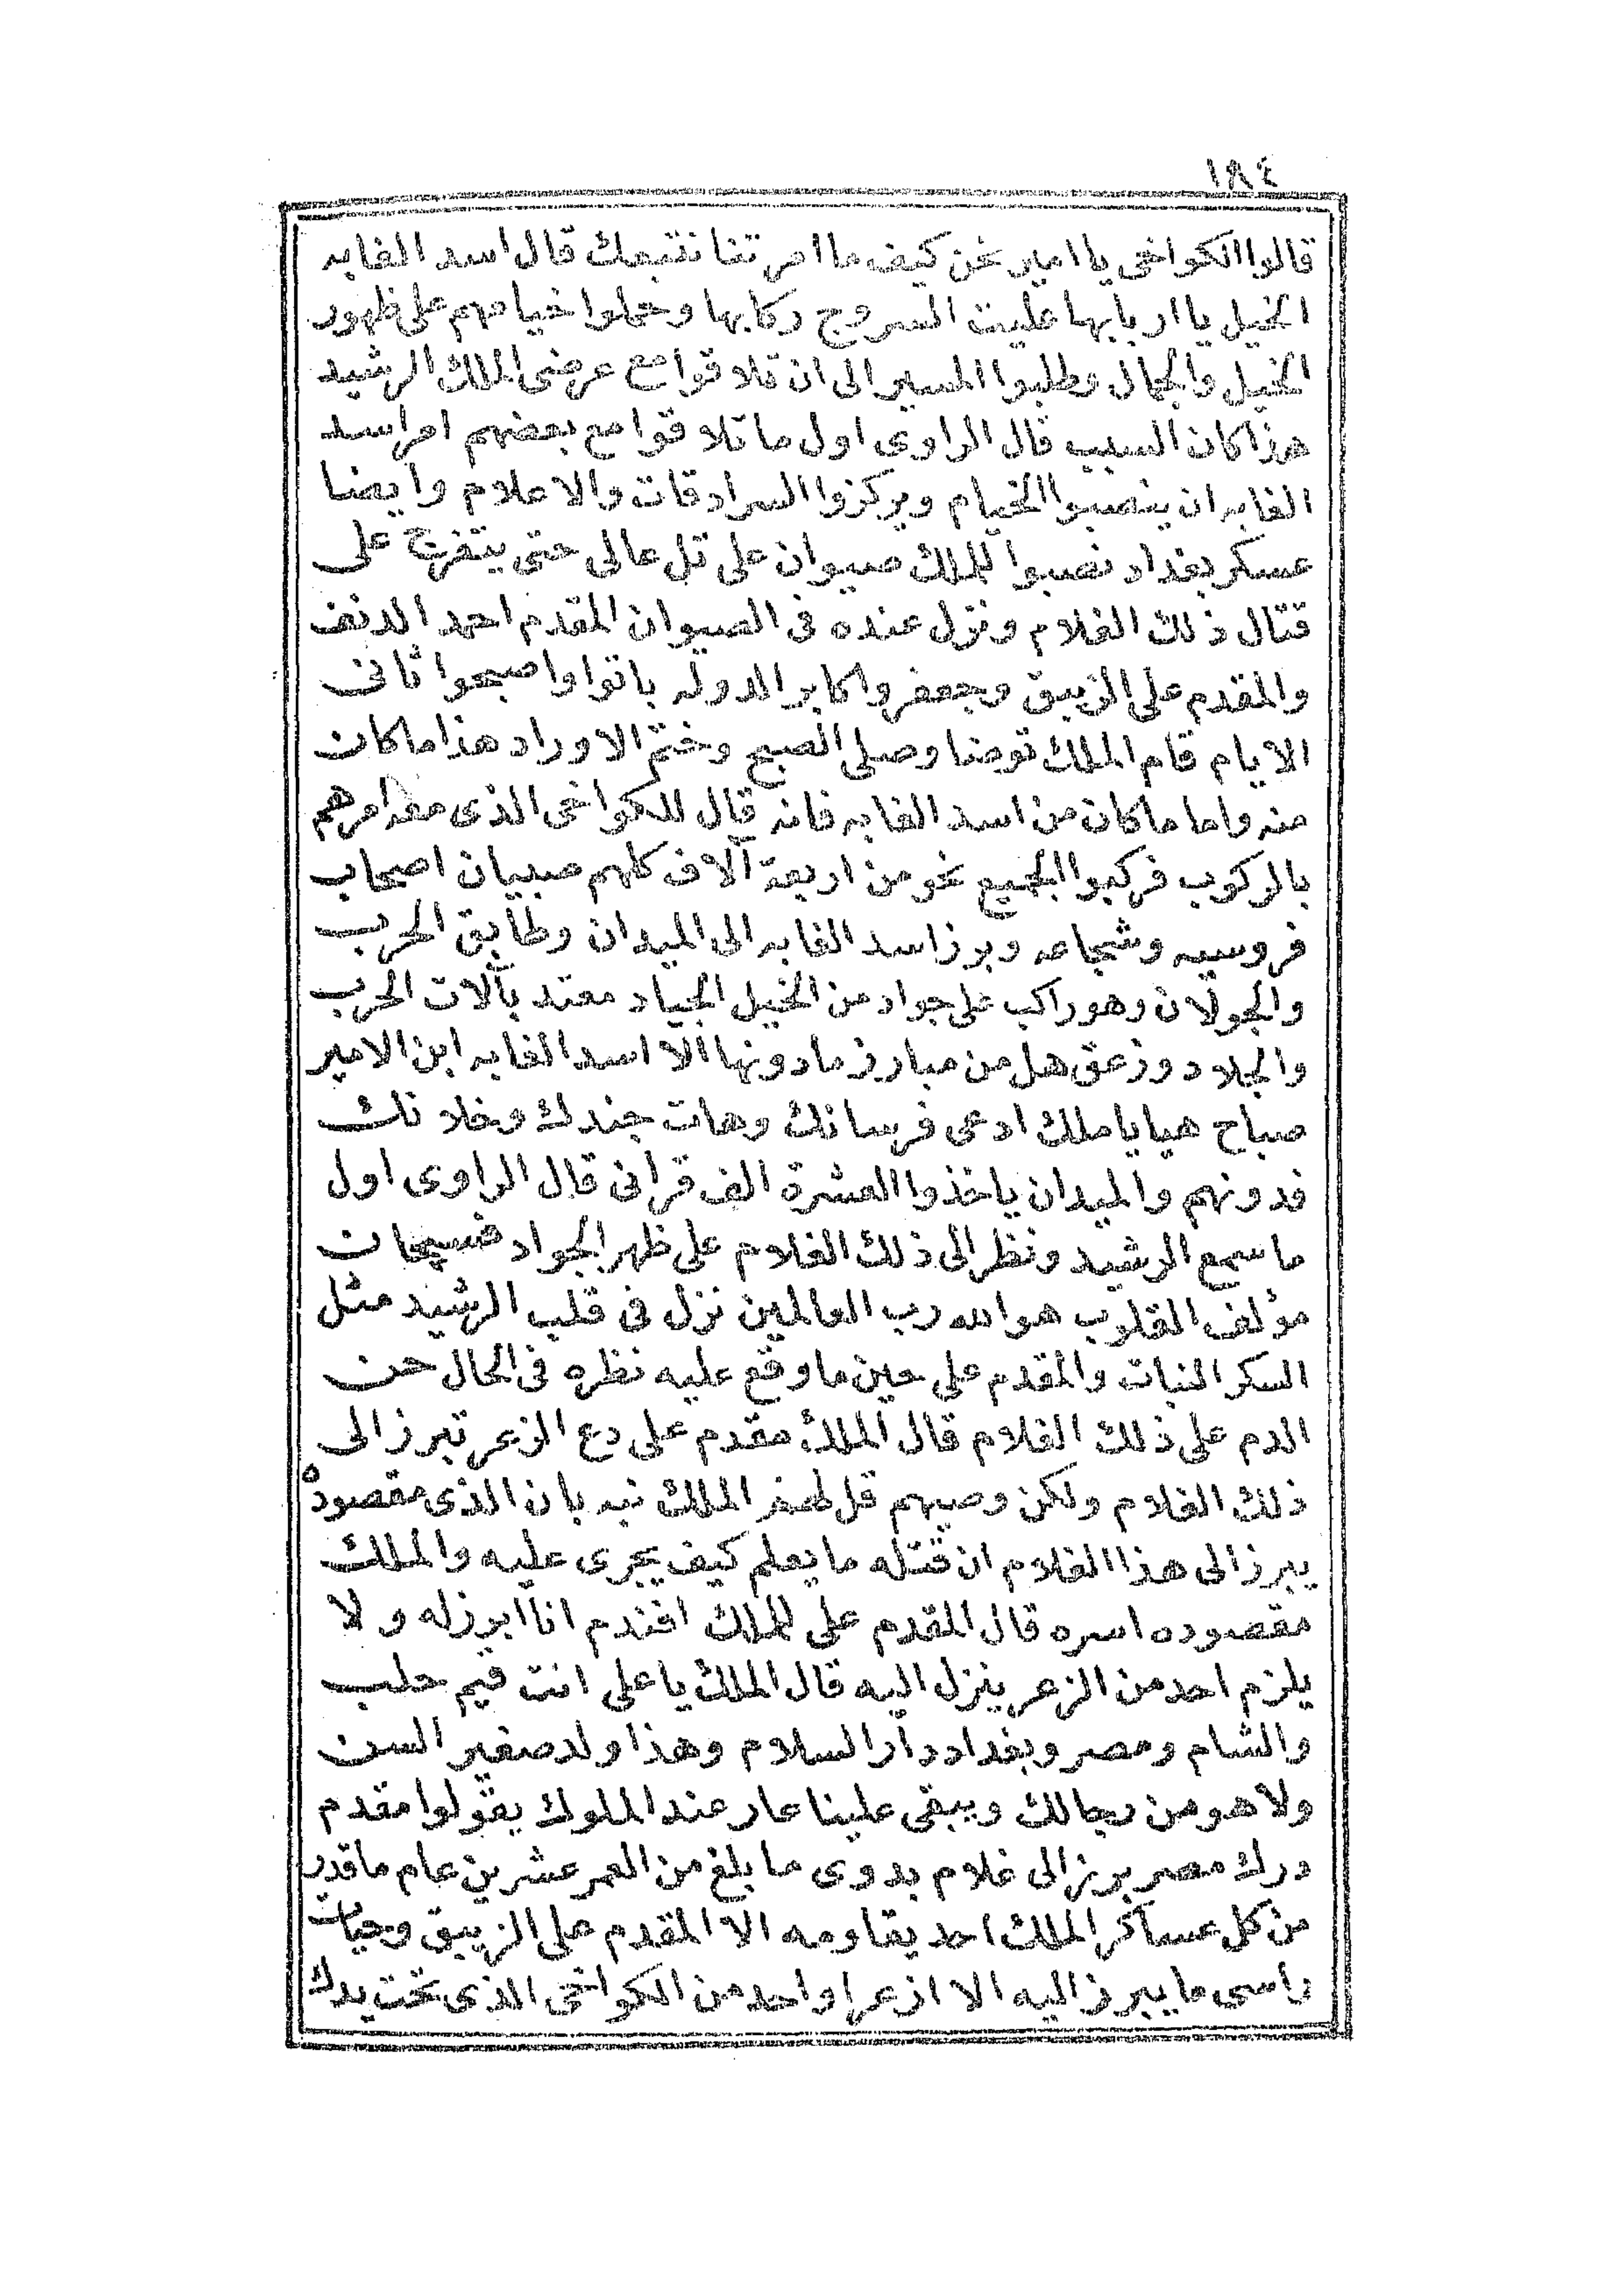 ١٨٤
قالوا الكواخى يا امير نحن كيف ما امرتنا نتبعك قال اسد الغابه
الخيل يا اربابها عليت السروج ركابها وحملوا خيامهم على ظهور
الخيل والجمال وطلبوا المسير الى ان تلاقوا مع عرضى الملك الرشيد
هذا كان السبب قال الراوى اول ما تلاقوا مع بعضهم امر اسد
الغابه ان ينصبوا الخيام ويركزوا السرادقات والاعلام وايضا
عسكر بغداد نصبوا للملك صيوان على تل عالى حتى يتفرج على
قتال ذلك الغلام ونزل عنده فى الصيوان المقدم احمد الدنف
والمقدم على الزيبق وجعفر واكابر الدوله باتوا واصبحوا ثانى
الايام قام الملك توضا وصلى الصبح وختم الاوراد هذا ما كان
منه واما ما كان من اسد الغابه فانه قال للكواخى الذى معه امرهم
بالركوب فركبوا الجميع نحو من اربعة آلاف كلهم صبيان اصحاب
فروسيه وشجاعه وبرز اسد الغابه الى الميدان وطابق الحرب
والجولان وهو راكب على جواد من الخيل الجياد معتد بآلات الحرب
والجلاد وزعق هل من مبارز مادونها الا اسد الغابه ابن الامير
صباح هيا يا ملك ادعى فرسانك وهات جندك وخلانك
فدونهم والميدان ياخذوا العشرة الف قرانى قال الراوى اول
ما سمع الرشيد ونظر الى ذلك الغلام على ظهر الجواد فسبحان
مؤلف القلوب هو الله رب العالمين نزل فى قلب الرشيد مثل
السكر النبات والمقدم على حين ما وقع عليه نظره فى الحال حن
الدم على ذلك الغلام قال الملك مقدم على دع الزعر تبرز الى
ذلك الغلام ولكن وصيهم قل لهم الملك نبه بان الذى مقصوده
يبرز الى هذا الغلام ان قتله ما يعلم كيف يجرى عليه والملك
مقصوده اسره قال المقدم على للملك افندم انا ابرز له ولا
يلزم احد من الزعر ينزل اليه قال الملك يا على انت قيم حلب
والشام ومصر وبغداد دار السلام وهذا ولد صغير السن
ولا هو من رجالك ويبقى علينا عار عند الملوك يقولوا مقدم
درك مصر برز الى غلام بدوى ما بلغ من العمر عشرين عام ما قدر
من كل عساكر الملك احد يقاومه الا المقدم على الزيبق وحيات
راسى ما يبرز اليه الا ازعر او احد من الكواخى الذى تحت يدك